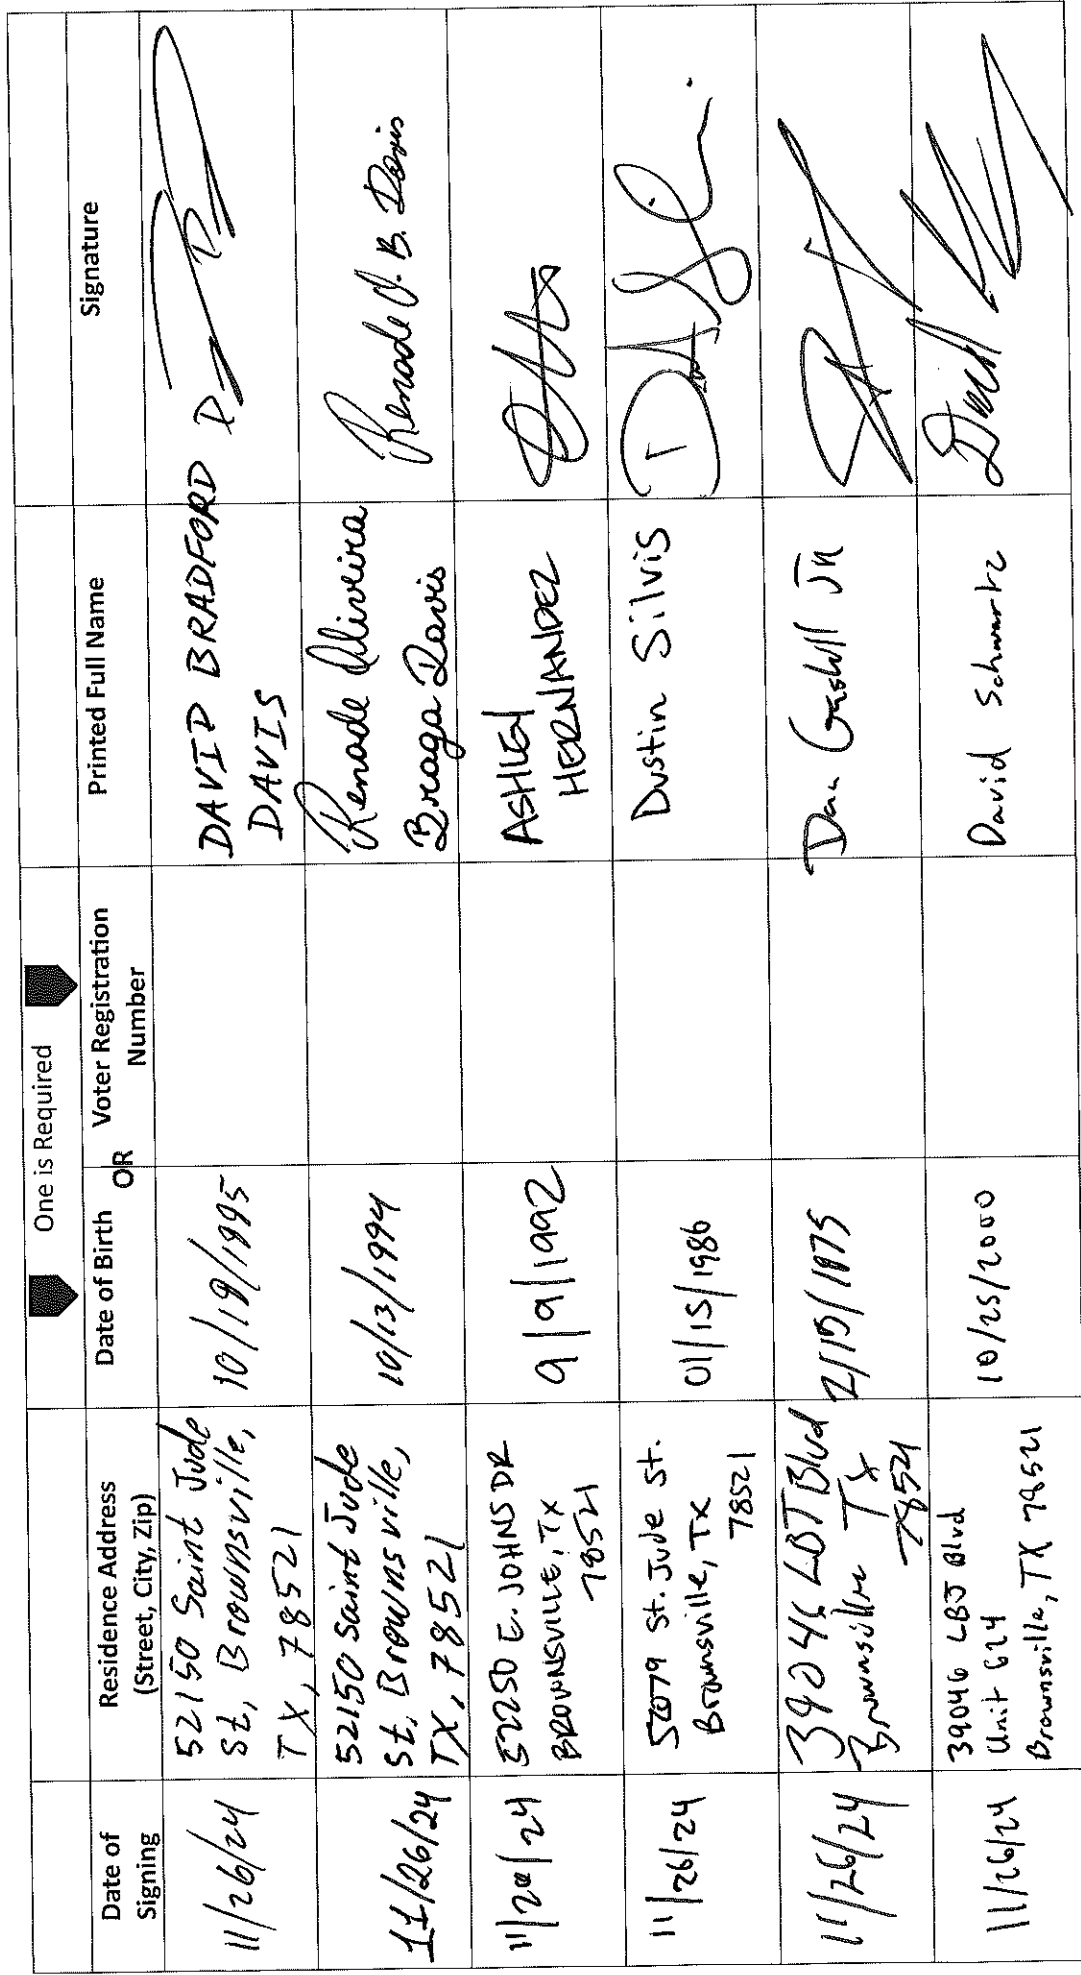 One is Required
Date of Signing
Residence Address (Street, City, Zip)
Date of Birth
OR
Voter Registration Number
Printed Full Name
Signature
11/26/24
52150 Saint Jude
St, Brownsville,
TX, 78521
10/19/1995
DAVID BRADFORD
DAVIS
11/26/24
52150 Saint Jude
St, Brownsville,
TX, 78521
10/13/1994
Renade Oliveira
Braga Davis
Renade O. B. Davis
11/26/24
52250 E. JOHNS DR
BROWNSVILLE, TX
78521
9/9/1992
ASHLEY
HERNANDEZ
11/26/24
St. Jude St.
Brownsville, TX
78521
01/15/1986
Dustin Silvis
11/26/24
39046 LBJ Blvd
Brownsville TX
78521
Dan Gaskill JR
11/26/24
39046 LBJ Blvd
Unit 624
Brownsville, TX 78521
10/25/2000
David Schwartz